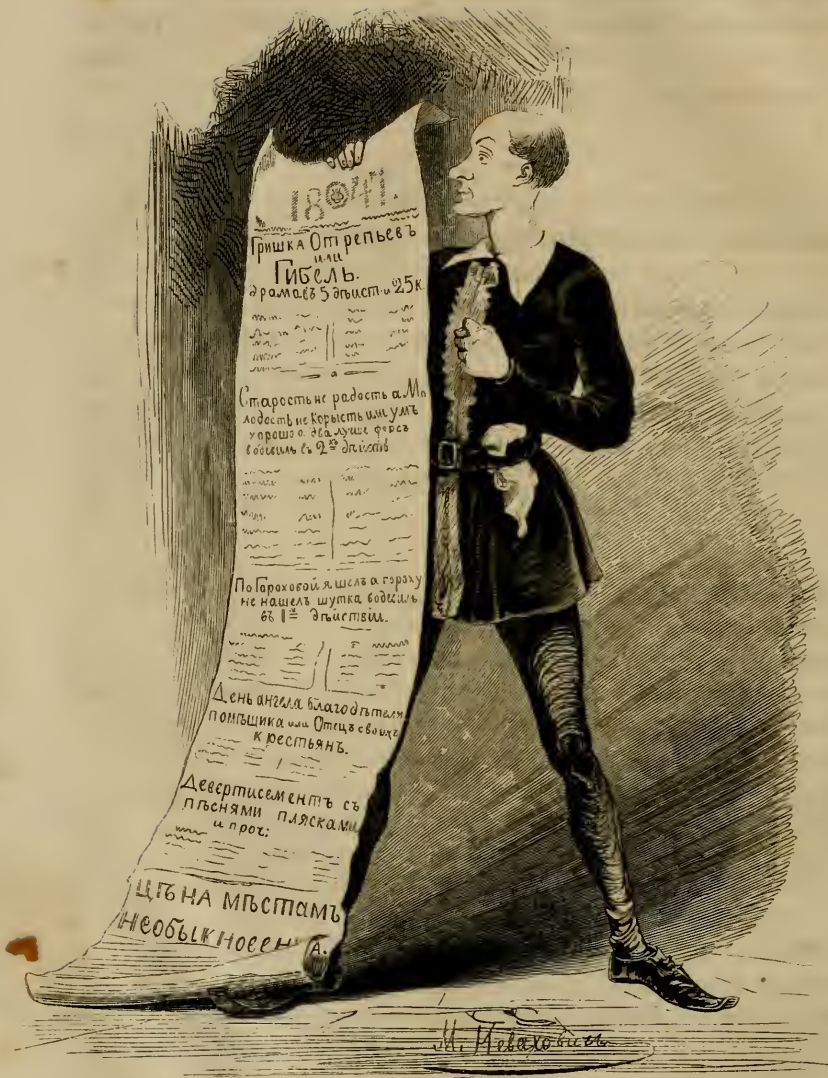 184
Гришка Отрепьевъ
или
Гибель.
драма въ 5 дѣист. и 25 к.
а
Старость не радость а Мо
лодость не Корысть или умъ
хорошо а два лучше фарсъ
водевиль въ 2хъ дѣйств
По Гароховой я шелъ а гороху
не нашелъ шутка водевиль
въ 1мъ дѣйствіи.
День ангела благодѣтеля
помѣщика или Отецъ своихъ
крестьян.
Девертисементъ съ
пѣснями плясками
и проч:
ЦѢНА МѢСТАМЪ
НЕОБЫКНОВЕН А.
М. Неваховичъ